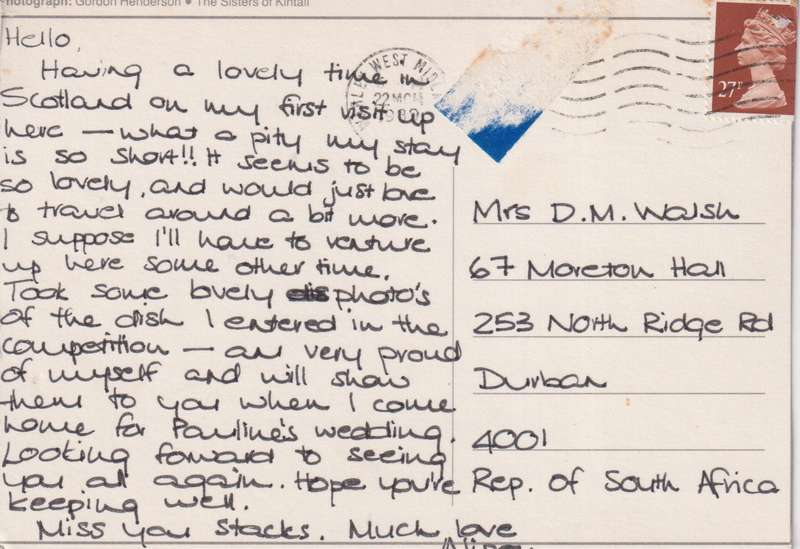 Photograph: Gordon Henderson • The Sisters of Kintail
Hello,
Having a lovely time in
Scotland on my first visit up
here – what a pity my stay
is so short!! It seems to be
so lovely, and would just love
to travel around a bit more.
I suppose I'll have to venture
up here some other time.
Took some lovely photo's
of the dish I entered in the
competition – am very proud
of myself and will show
them to you when I come
home for Pauline's wedding.
Looking forward to seeing
you all again. Hope you're
keeping well.
Miss you stacks. Much love
WEST MID
22
27P
Mrs D.M. Walsh
67 Moreton Hall
253 North Ridge Rd
Durban
4001
Rep. of South Africa